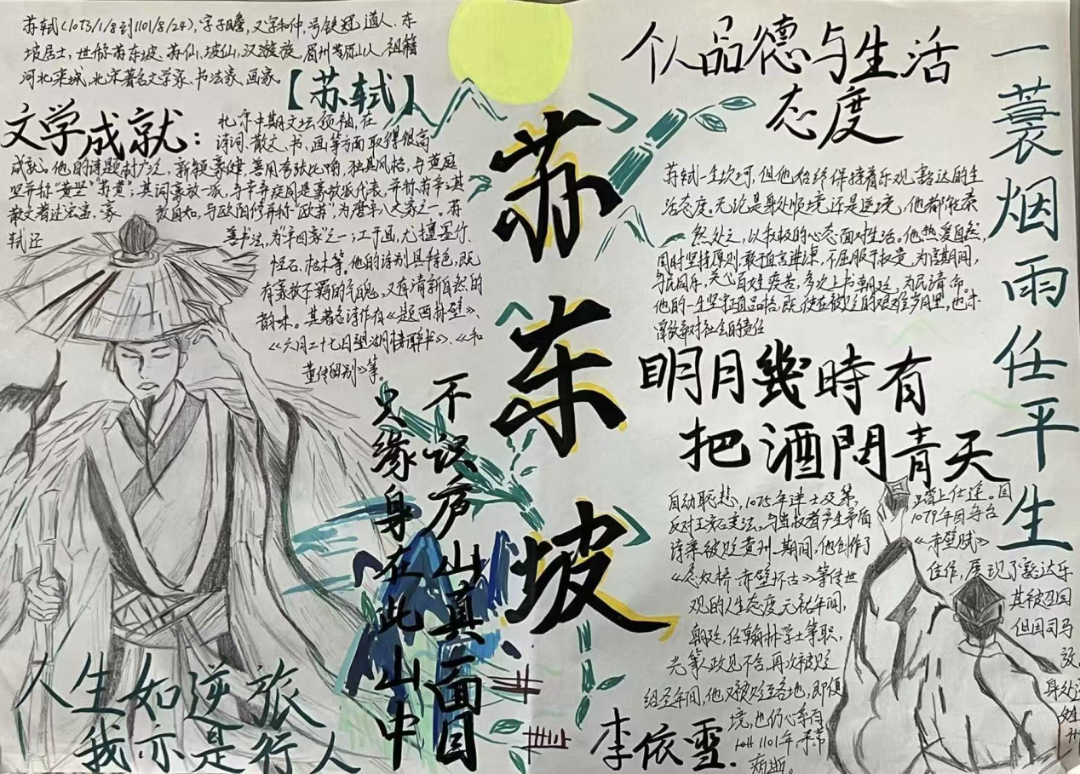 苏轼(1037/1/8到1101/8/24),字子瞻,又字和仲,号铁冠道人、东
坡居士,世称苏东坡、苏仙、坡仙,汉族,眉州眉山人,祖籍
河北栾城,北宋著名文学家、书法家、画家。
【苏轼】
文学成就:
北宋中期文坛领袖,在
诗词、散文、书、画等方面取得很高
成就。他的诗题材广泛,新颖豪健,善用夸张比喻,独具风格,与黄庭
坚并称“苏黄”,其词豪放一派,与辛弃疾同是豪放派代表,并称“苏辛”,其
散文著述宏富,豪放自如,与欧阳修并称“欧苏”,为唐宋八大家之一。苏
轼还善书法,为“宋四家”之一;工于画,尤擅墨竹、
怪石、枯木等,他的诗别具特色,既
有豪放不羁的气魄,又有清新自然的
韵味。其著名诗作有《题西林壁》、
《六月二十七日望湖楼醉书》、《和
董传留别》等。
不识庐山真面目
只缘身在此山中
人生如逆旅
我亦是行人
苏东坡
个人品德与生活
态度
苏轼一生坎坷,但他始终保持着乐观、豁达的生
活态度。无论是身处顺境还是逆境,他都能泰
然处之,以积极的心态面对生活。他热爱自然,
同时坚持原则,敢于直言进谏,不屈服于权贵,为官期间,
与民同乐,关心百姓疾苦,多次上书朝廷,为民请命。
他的一生坚持道品格,既使在被贬的艰难岁月里,也未
曾放弃对社会的责任
明月幾時有
把酒問青天
自幼聪慧,1075年进士及第,
踏上仕途。因
反对王安石变法,与当权者产生矛盾
1079年因乌台
诗案被贬黄州。期间,他创作了
《赤壁赋》
《念奴娇·赤壁怀古》等传世
佳作,展现了豁达乐
观的人生态度元祐年间,
其被召回
朝廷,任翰林学士等职,
但因司马
光等人政见不合,再次被贬
绍圣年间,他又被贬至各地,即便
身处
境,也仍心系百
1101年
病逝。
李依雪.
一蓑烟雨任平生